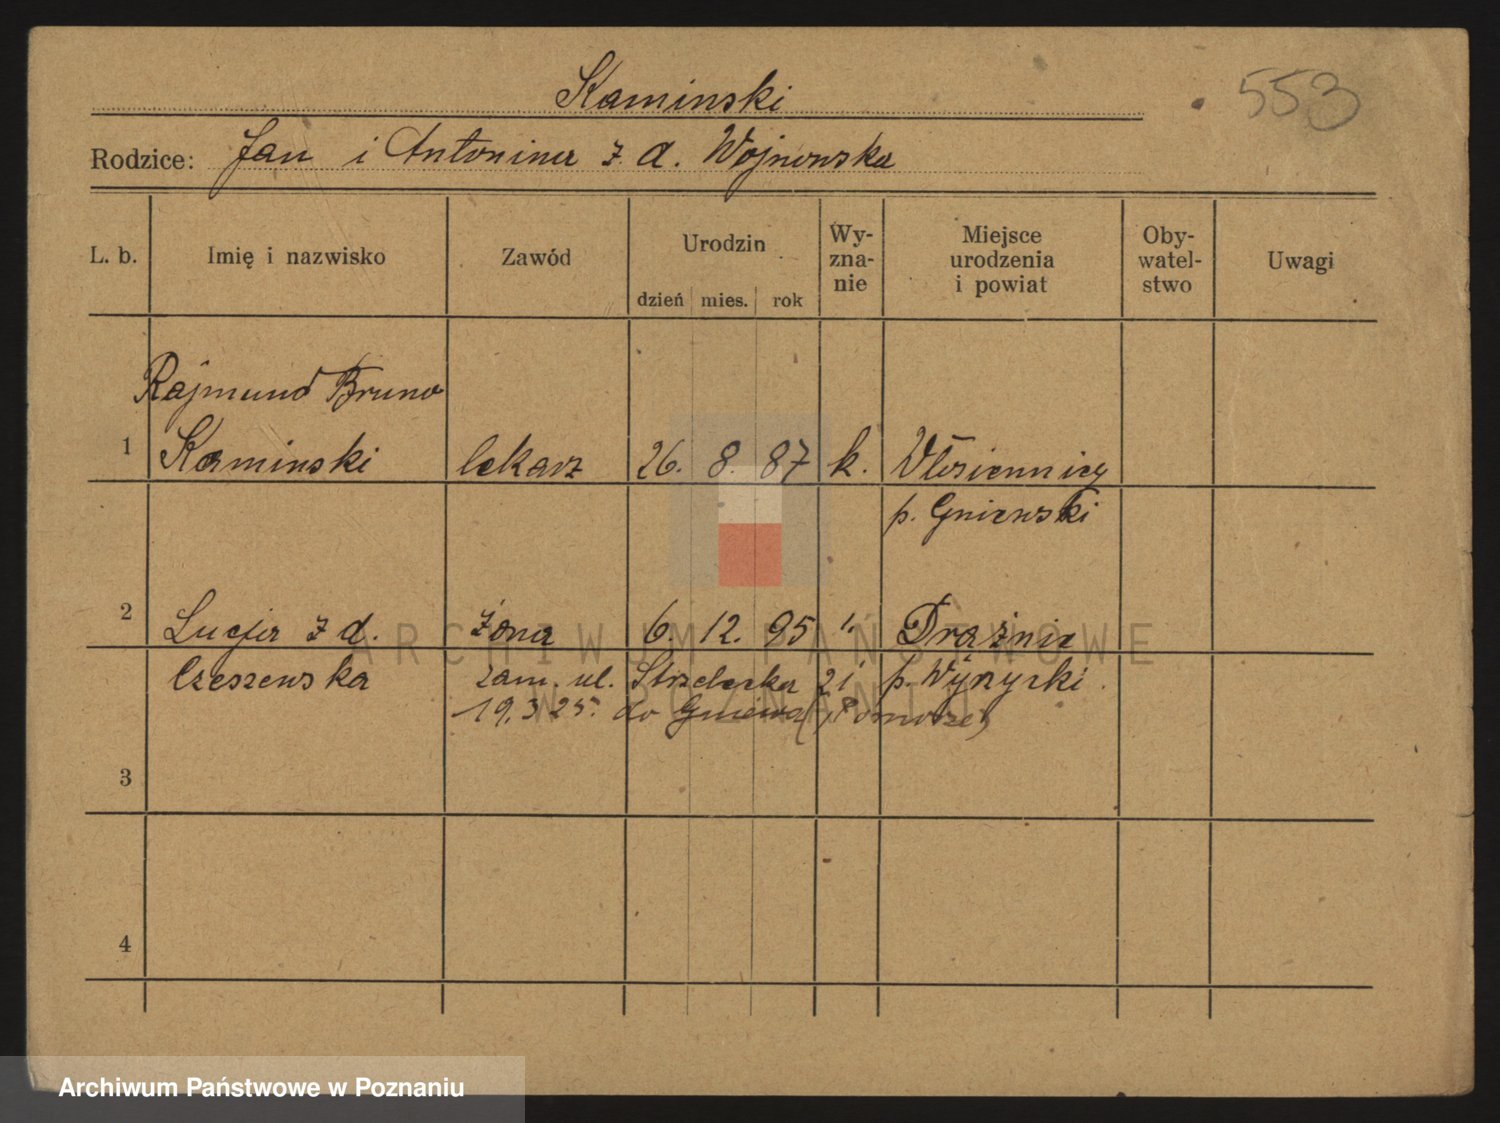 Kaminski
553
Rodzice: Jan i Antonina z d. Wojnowska
L. b. Imię i nazwisko Zawód Urodzin dzień mies. rok Wy-zna-nie Miejsce urodzenia i powiat Oby-watel-stwo Uwagi
Rajmund Bruno
1 Kaminski lekarz 26. 8. 87 k. Włosiennicy
p. Gniewski
2 Lucja z d. żona 6. 12. 95 " Drążnie
Czeszewska zam. ul. Strzelecka 21 p. Wyrzyski
19.3 25. do Gniewa (Pomorze)
3
4
ARCHIWUM PAŃSTWOWE
W POZNANIU
Archiwum Państwowe w Poznaniu